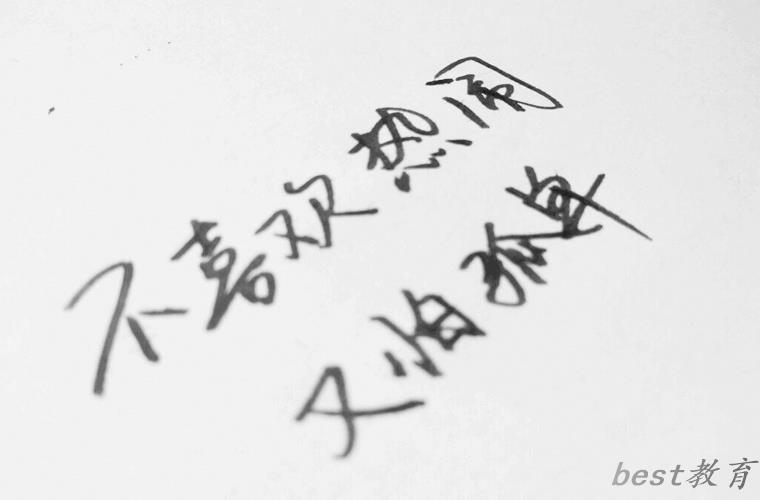 不喜欢热闹
又怕孤单
best教育